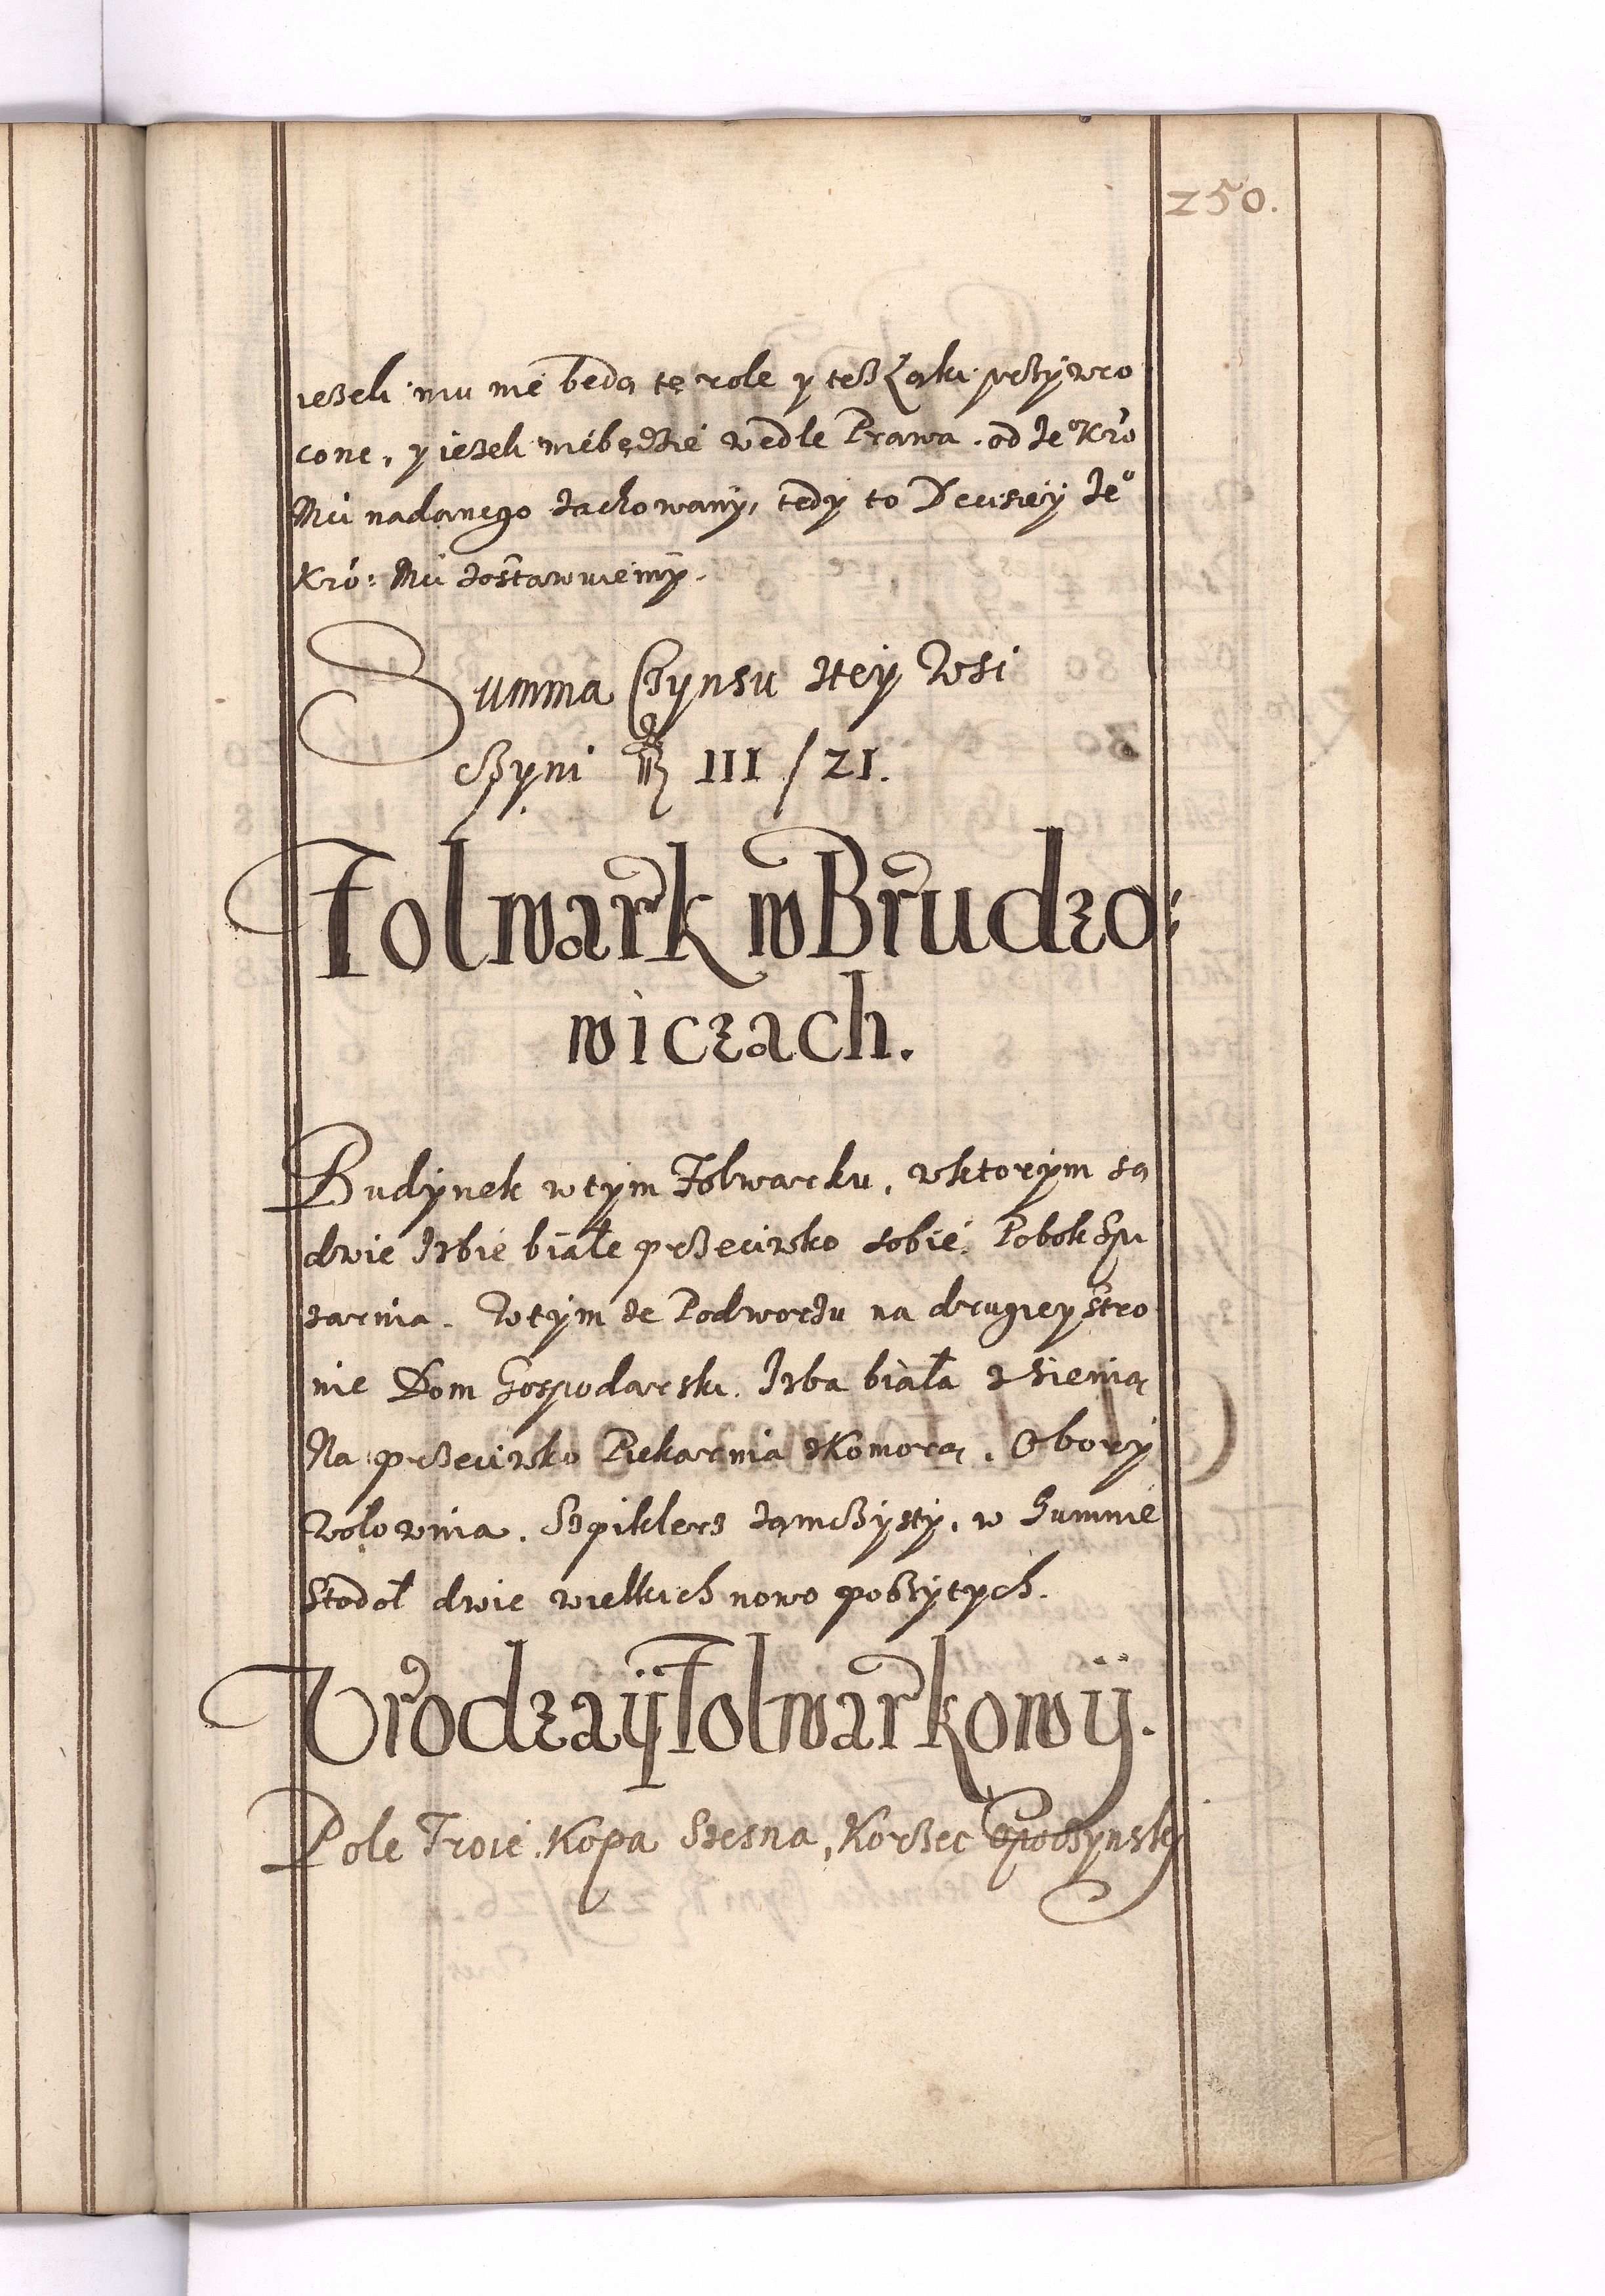 250.
ieżeli mu nie będą te role y też Łąki przywro
cone, y ieżeli niebędzie wedle Prawa od Je° Kró
Mći nadanego zachowany, tedy to Decisiey Je°
Kró: Mći zostawuiemy.
Summa Czynsu ztey Wsi
czyni III / 21.
Folwark w Brudzo:
wiczach.
Budynek wtym Folwarku, wktorym są
dwie Izbie białe przeciwko sobie. Pobok Spi
zarnia. Wtym ze Podworzu na drugiey stro
nie Dom Gospodarski. Izba biała z Sienią
Na przeciwko Piekarnia zKomorą. Obory
Wołownia. Szpiklerz zamczysty, w Gumnie
Stodoł dwie wielkich nowo poszytych.
Vrodzaij Folwarkowij.
Pole Troie. Kopa Szesna, Korzec Opoczynsky